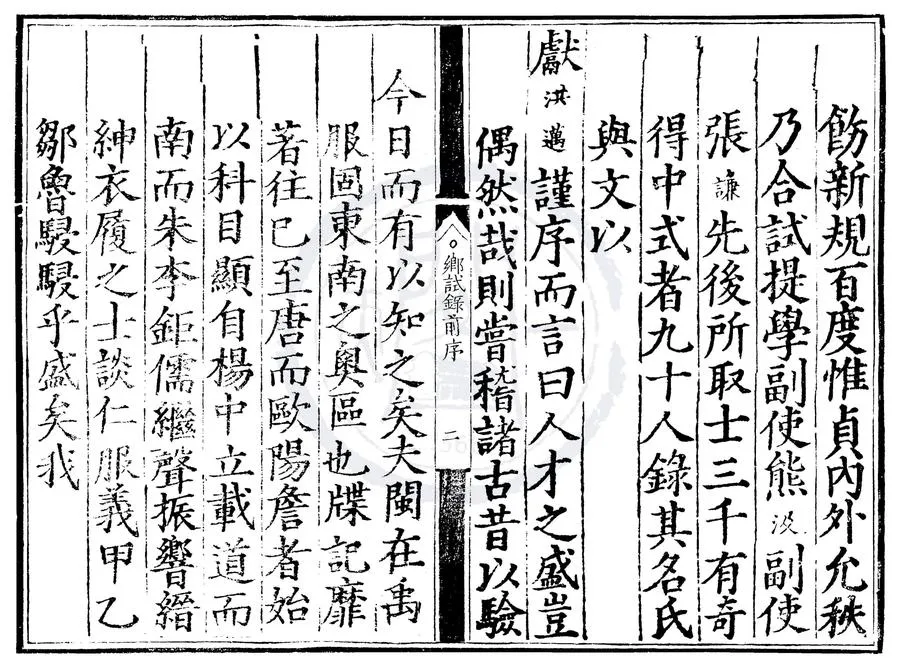 飭新規百度惟貞內外允秩
乃合試提學副使熊汲副使
張謙先後所取士三千有奇
得中式者九十人錄其名氏
與文以
獻洪邁謹序而言曰人才之盛豈
偶然哉則嘗稽諸古昔以驗
鄉試錄前序 二
今日而有以知之矣夫閩在禹
服固東南之奧區也牒記靡
著往已至唐而歐陽詹者始
以科目顯自楊中立載道而
南而朱李鉅儒繼聲振響縉
紳衣履之士談仁服義甲乙
鄒魯駸駸乎盛矣我